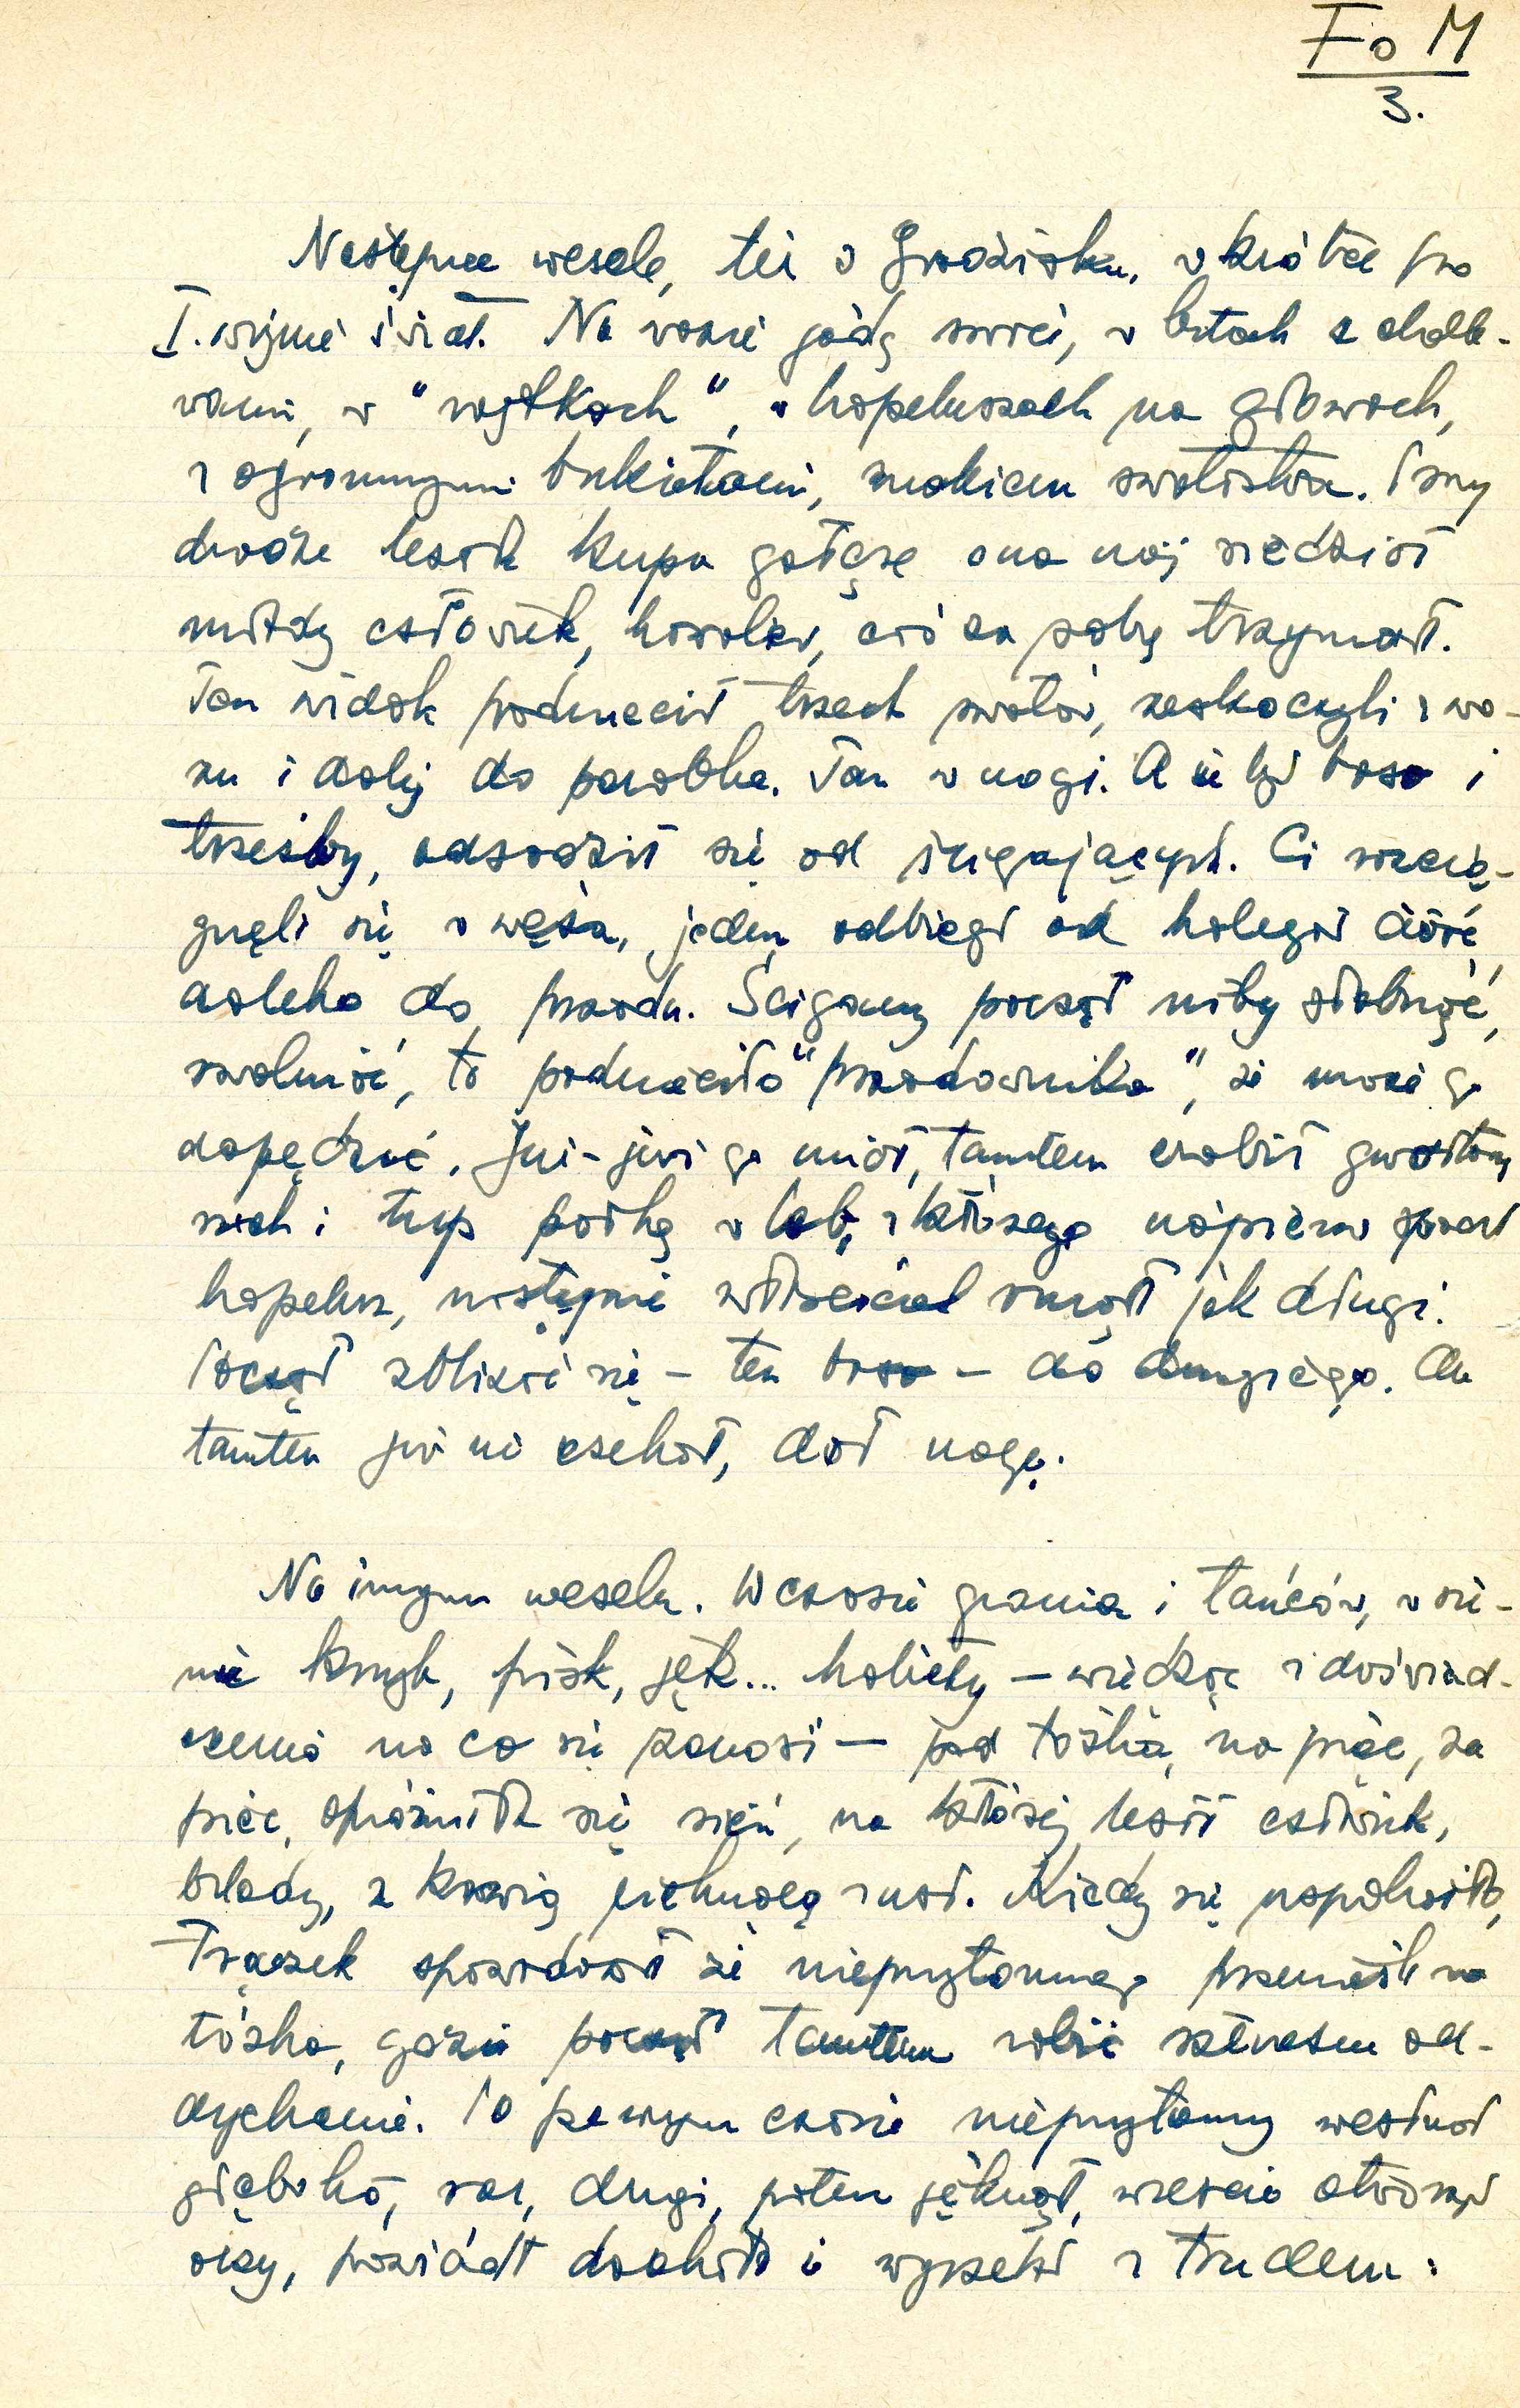 Fo M
3.
Następne wesele, też w Grodzisku, wkrótce po
I. wojnie świat. Na wozie jadą swaci, w butach z chole-
wami, w "wojtkach", w kapeluszach na głowach,
z ogromnymi bukietami, znakiem swatostwa. Przy
drodze leżała kupa gałęzi a na niej siedział
młody człowiek, kawaler, coś za pałkę trzymał.
Ten widok podniecił trzech swatów, zeskoczyli z wo-
zu i dalej do parobka. Ten w nogi. A że był boso i
trzeźwy, odsadził się od ścigających. Ci rozcią-
gnęli się w węża, jeden odbiegł od kolegów dość
daleko do przodu. Ścigany począł niby słabnąć,
zwalniać, to podnieciło "przodownika", że może go
dopędzić. Już-już go miał, tamten zrobił gwałtowny
ruch i łup pałką w łeb, z którego najpierw spadł
kapelusz, następnie właściciel runął jak długi.
Począł zbliżać się - ten boso - do drugiego. Ale
tamten już nie czekał, dał nogę.
Na innym weselu. W czasie grania i tańców, w sie-
ni krzyk, pisk, jęk... kobiety - wiedząc z doświad-
czenia na co się zanosi - pod łóżka, na piec, za
piec, opróżniła się sień, na której leżał człowiek,
blady, z krwią cieknącą z ust. Kiedy się uspokoiło,
Frączek opowiadał że nieprzytomnego przenieśli na
łóżko, gdzie począł tamtem robić sztuczne od-
dychanie. Po pewnym czasie nieprzytomny westchnął
głęboko, raz, drugi, potem jęknął, wreszcie otworzył
oczy, powiódł dookoła i wyrzekł z trudem: